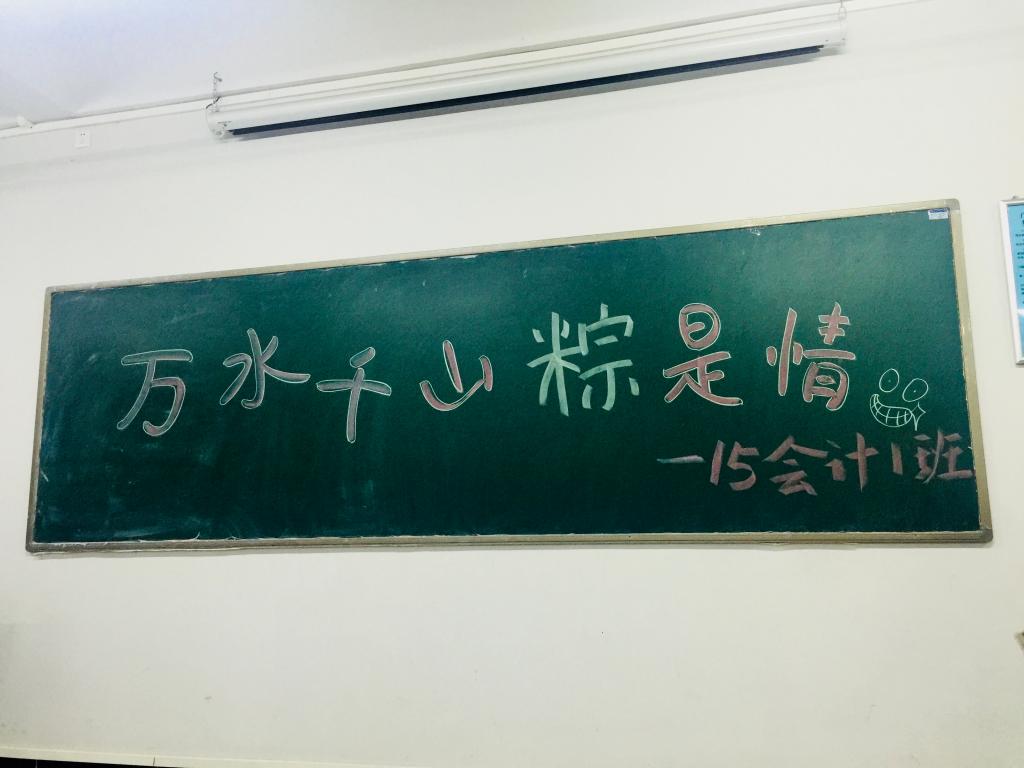 万水千山粽是情
—15会计1班